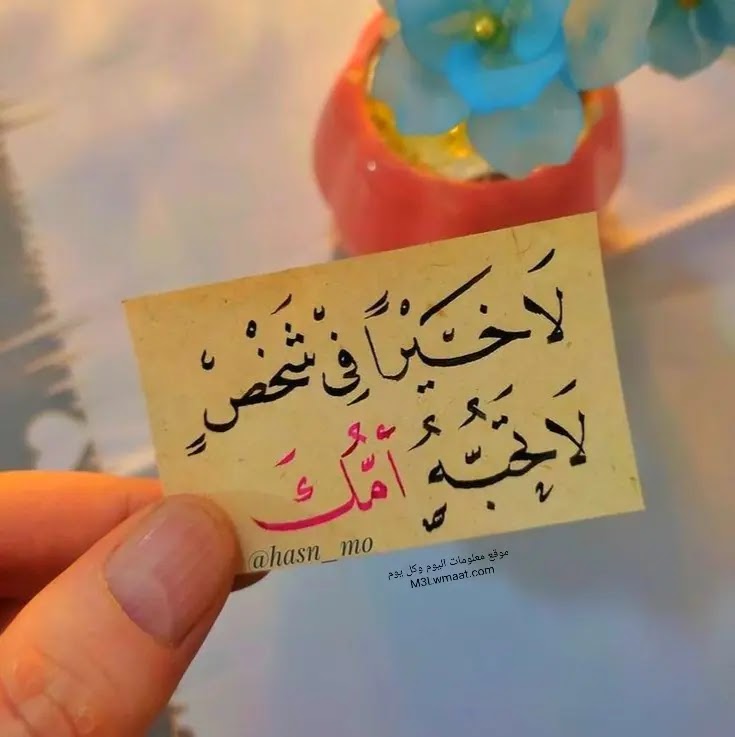 لَا خَيْراً فِيْ شَخْصٍ
لَا تُحِبُّهُ أُمُّكَ
@hasn_mo
موقع معلومات اليوم وكل يوم
M3Lwmaat.com